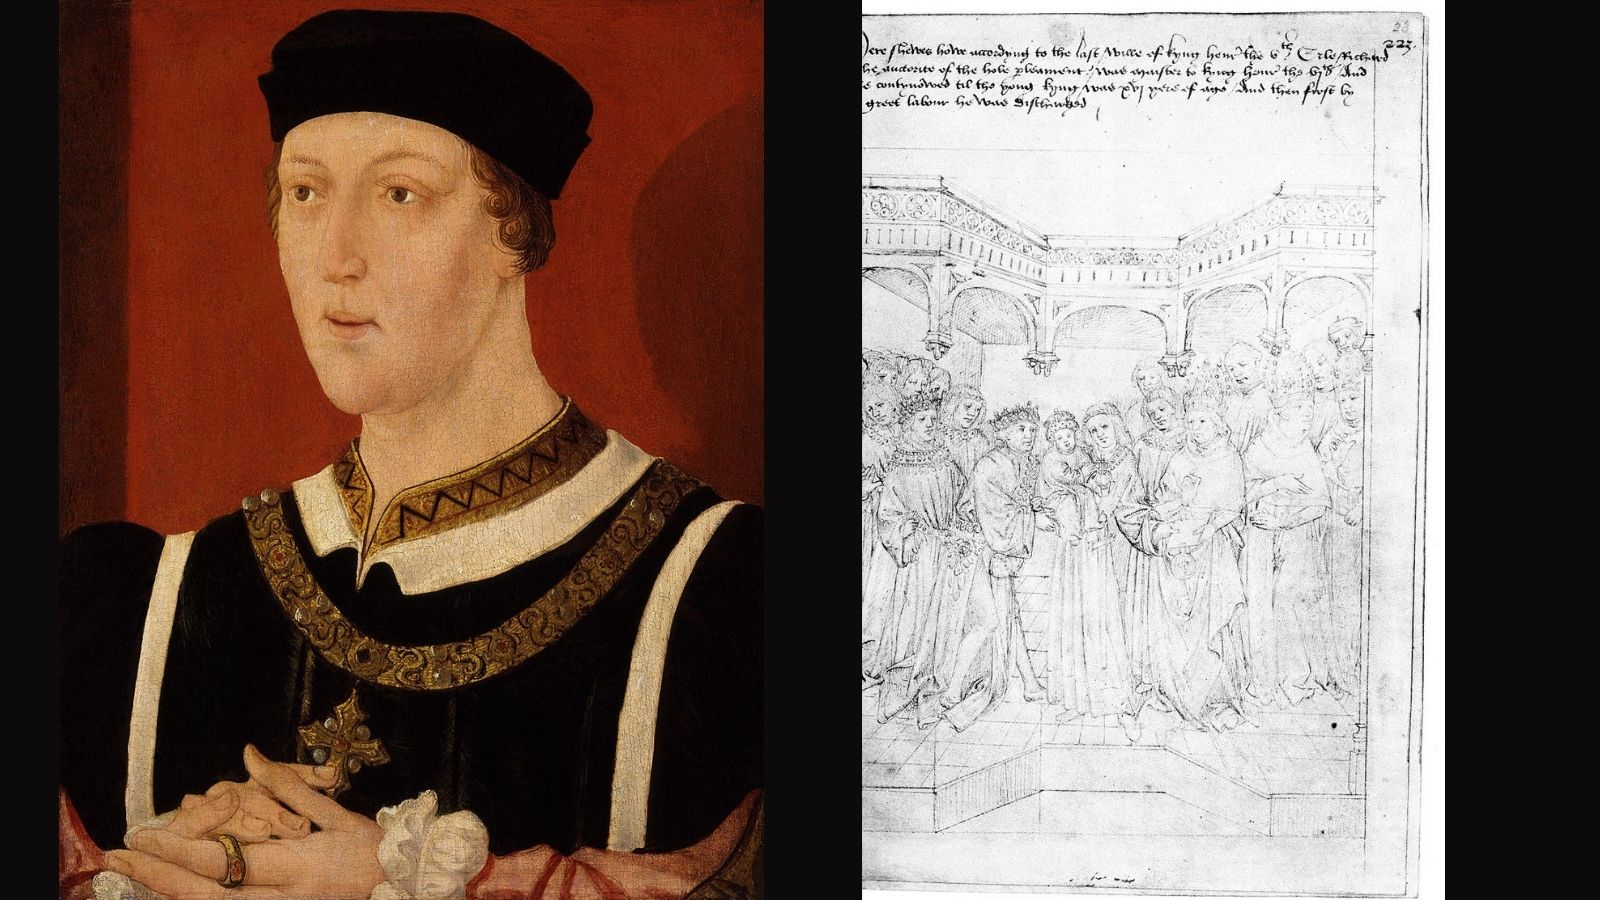 23
223.
ere shewes howe accordyng to the last wille of kyng henr' the vth Erle Richard
he auctorite of the hole pleament was maister to kyng henr' the vjth And
e contynowed til the yong kyng was xvj yere of age And then first by
greet labour he was discharged